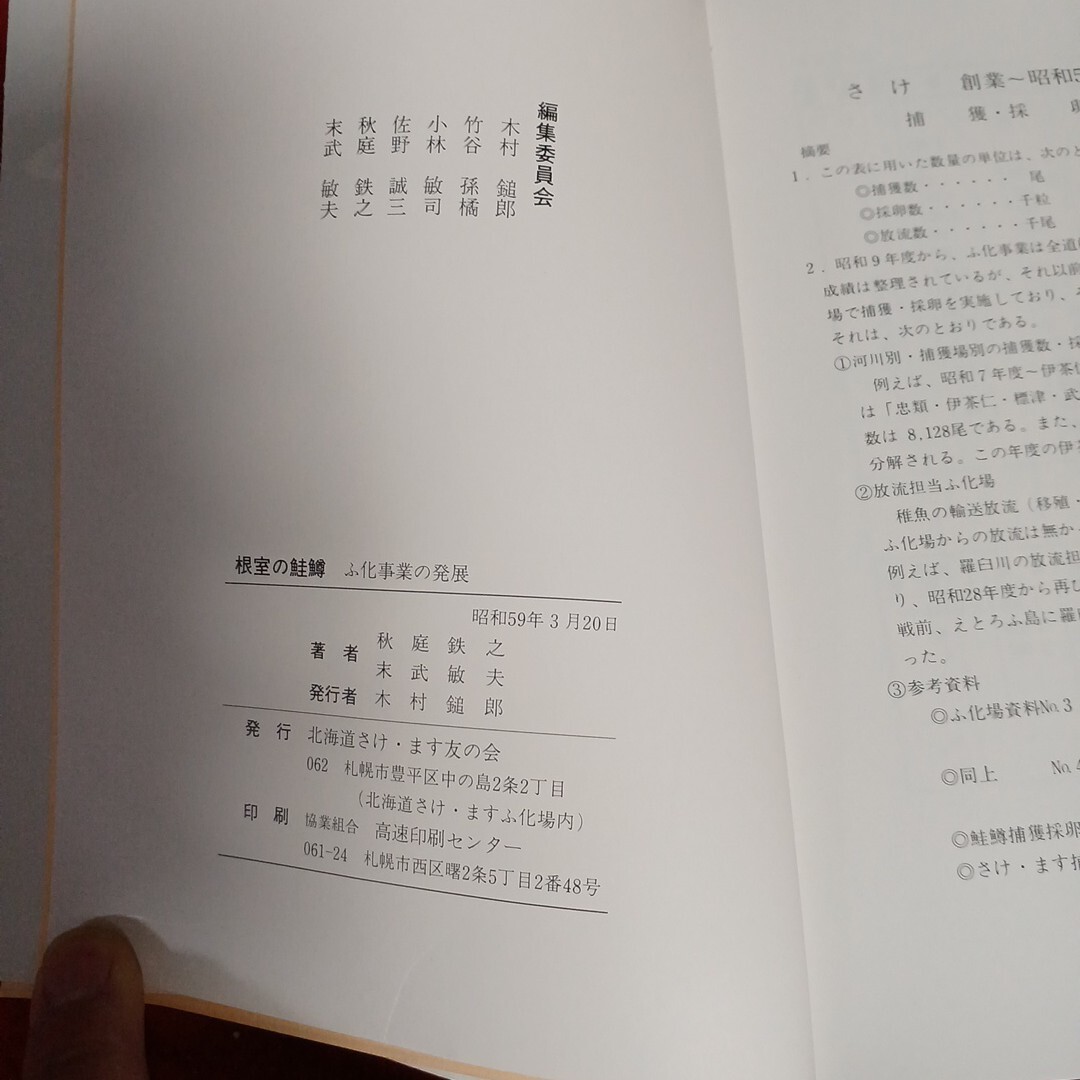 編集委員会
木村 鎚郎
竹谷 孫橘
小林 敏司
佐野 誠三
秋庭 鉄之
末武 敏夫
根室の鮭鱒 ふ化事業の発展
昭和59年3月20日
著者 秋庭鉄之
末武敏夫
発行者 木村鎚郎
発行 北海道さけ・ます友の会
062 札幌市豊平区中の島2条2丁目
(北海道さけ・ますふ化場内)
印刷 協業組合 高速印刷センター
061-24 札幌市西区曙2条5丁目2番48号
さけ 創業~昭和5
捕獲・採
摘要
1.この表に用いた数量の単位は、次のと
◎捕獲数・・・・・・ 尾
◎採卵数・・・・・・千粒
◎放流数・・・・・・千尾
2.昭和9年度から、ふ化事業は全道
成績は整理されているが、それ以前
場で捕獲・採卵を実施しており、
それは、次のとおりである。
①河川別・捕獲場別の捕獲数・採
例えば、昭和7年度~伊茶仁
は「忠類・伊茶仁・標津・武
数は 8,128尾である。また、
分解される。この年度の伊茶
②放流担当ふ化場
稚魚の輸送放流(移殖・
ふ化場からの放流は無か
例えば、羅臼川の放流担
り、昭和28年度から再び
戦前、えとろふ島に羅
った。
③参考資料
◎ふ化場資料No.3
◎同上 No.4
◎鮭鱒捕獲採卵
◎さけ・ます捕